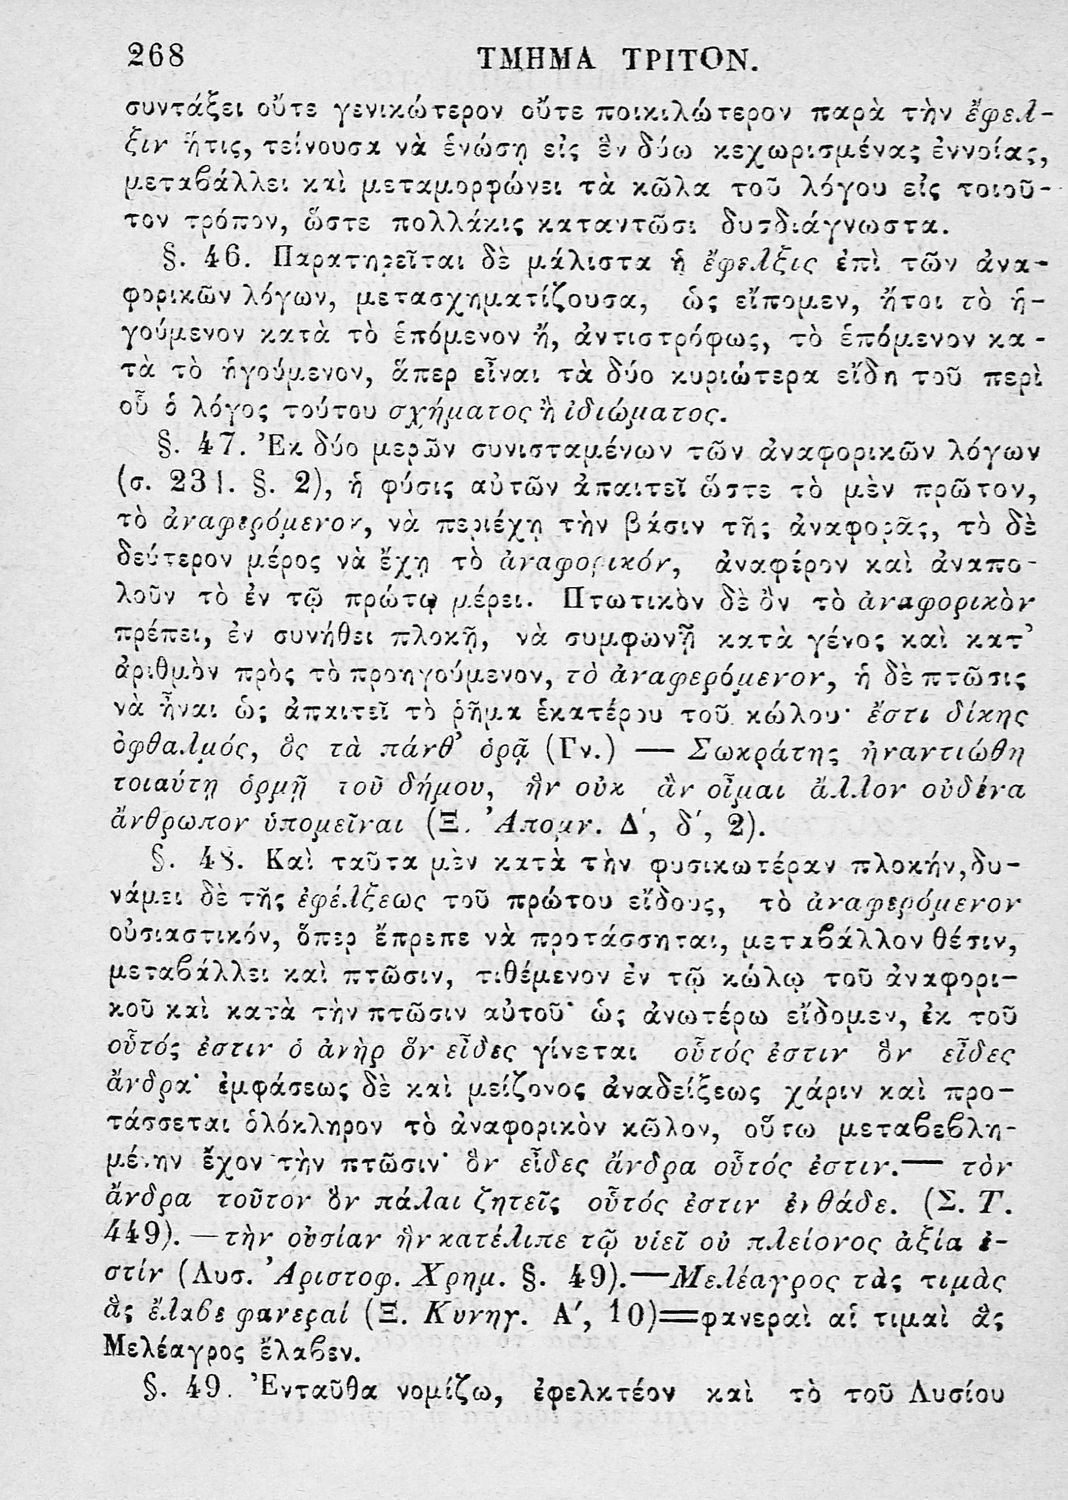 268 ΤΜΗΜΑ ΤΡΙΤΟΝ.
συντάξει οὔτε γενικώτερον οὔτε ποικιλώτερον παρὰ τὴν ἔφελ-
ξιν ἥτις, τείνουσα νὰ ἑνώσῃ εἰς ἓν δύω κεχωρισμένας ἐννοίας,
μεταβάλλει καὶ μεταμορφώνει τὰ κῶλα τοῦ λόγου εἰς τοιοῦ-
τον τρόπον, ὥστε πολλάκις καταντῶσι δυσδιάγνωστα.
§. 46. Παρατηρεῖται δὲ μάλιστα ἡ ἔφελξις ἐπὶ τῶν ἀνα-
φορικῶν λόγων, μετασχηματίζουσα, ὡς εἴπομεν, ἤτοι τὸ ἡ-
γούμενον κατὰ τὸ ἑπόμενον ἤ, ἀντιστρόφως, τὸ ἑπόμενον κα-
τὰ τὸ ἡγούμενον, ἅπερ εἶναι τὰ δύο κυριώτερα εἴδη τοῦ περὶ
οὗ ὁ λόγος τούτου σχήματος ἢ ἰδιώματος.
§. 47. Ἐκ δύο μερῶν συνισταμένων τῶν ἀναφορικῶν λόγων
(σ. 231. §. 2), ἡ φύσις αὐτῶν ἀπαιτεῖ ὥστε τὸ μὲν πρῶτον,
τὸ ἀναφερόμενον, νὰ περιέχῃ τὴν βάσιν τῆς ἀναφορᾶς, τὸ δὲ
δεύτερον μέρος νὰ ἔχῃ τὸ ἀναφορικόν, ἀναφέρον καὶ ἀναπο-
λοῦν τὸ ἐν τῷ πρώτῳ μέρει. Πτωτικὸν δὲ ὂν τὸ ἀναφορικὸν
πρέπει, ἐν συνήθει πλοκῇ, νὰ συμφωνῇ κατὰ γένος καὶ κατ’
ἀριθμὸν πρὸς τὸ προηγούμενον, τὸ ἀναφερόμενον, ἡ δὲ πτῶσις
νὰ ἦναι ὡς ἀπαιτεῖ τὸ ῥῆμα ἑκατέρου τοῦ κώλου· ἔστι δίκης
ὀφθαλμός, ὃς τὰ πάνθ’ ὁρᾷ (Γν.) — Σωκράτης ἠναντιώθη
τοιαύτῃ ὁρμῇ τοῦ δήμου, ἣν οὐκ ἂν οἶμαι ἄλλον οὐδένα
ἄνθρωπον ὑπομεῖναι (Ξ. Ἀπομν. Δ΄, δ΄, 2).
§. 48. Καὶ ταῦτα μὲν κατὰ τὴν φυσικωτέραν πλοκήν, δυ-
νάμει δὲ τῆς ἐφέλξεως τοῦ πρώτου εἴδους, τὸ ἀναφερόμενον
οὐσιαστικόν, ὅπερ ἔπρεπε νὰ προτάσσηται, μεταβάλλον θέσιν,
μεταβάλλει καὶ πτῶσιν, τιθέμενον ἐν τῷ κώλῳ τοῦ ἀναφορι-
κοῦ καὶ κατὰ τὴν πτῶσιν αὐτοῦ· ὡς ἀνωτέρω εἴδομεν, ἐκ τοῦ
οὗτός ἐστιν ὁ ἀνὴρ ὅν εἶδες γίνεται οὗτός ἐστιν ὃν εἶδες
ἄνδρα· ἐμφάσεως δὲ καὶ μείζονος ἀναδείξεως χάριν καὶ προ-
τάσσεται ὁλόκληρον τὸ ἀναφορικὸν κῶλον, οὕτω μεταβεβλη-
μένην ἔχον τὴν πτῶσιν· ὃν εἶδες ἄνδρα οὗτός ἐστιν.— τὸν
ἄνδρα τοῦτον ὃν πάλαι ζητεῖς οὗτός ἐστιν ἐνθάδε. (Σ. Τ.
449).—τὴν οὐσίαν ἣν κατέλιπε τῷ υἱεῖ οὐ πλείονος ἀξία ἐ-
στίν (Λυσ. Ἀριστοφ. Χρημ. §. 49).—Μελέαγρος τὰς τιμὰς
ἃς ἔλαβε φανεραί (Ξ. Κυνηγ. Α΄, 10)=φανεραὶ αἱ τιμαὶ ἃς
Μελέαγρος ἔλαβεν.
§. 49. Ἐνταῦθα νομίζω, ἐφελκτέον καὶ τὸ τοῦ Λυσίου